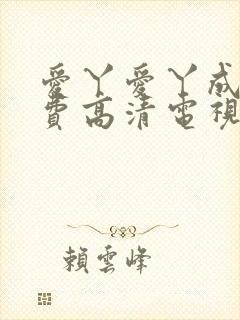 愛丫愛丫成
費高清電視
賴雲峰